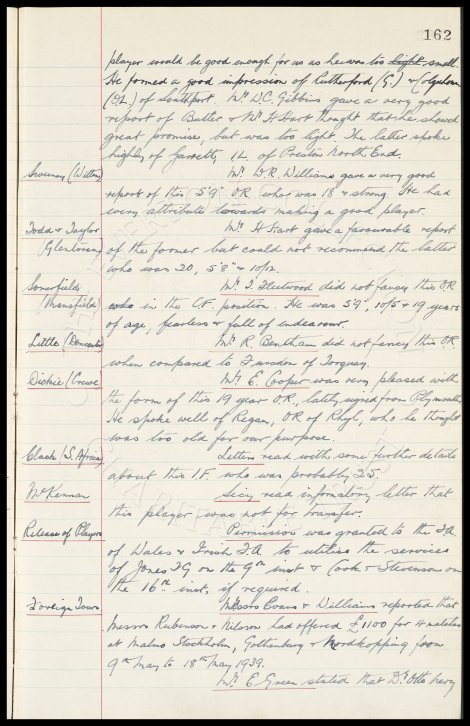 162
player would be good enough for us as he was too light, small.
He formed a good impression of Rutherford (G.) & Colquhoun
(OL) of Southport. Mr. D.C. Gibbins gave a very good
report of Butler & Mr. H Start thought that he showed
great promise, but was too light. The latter spoke
highly of Garrett, IL of Preston North End.
Sweeney (Wilton) Mr. W.R. Williams gave a very good
report of this 5'9" OR who was 18 & strong. He had
every attribute towards making a good player.
Todd & Taylor Mr. H Start gave a favourable report
(Glentoran) of the former but could not recommend the latter
who was 20, 5'8" & 10/12.
Somerfields Mr. J. Fleetwood did not fancy this OR
(Mansfield) who in the CF. position. He was 5'9", 10/5 & 19 years
of age, fearless & full of endeavour.
Little (Doncaster) Mr. R. Bentham did not fancy this OR.
when compared to Fursdon of Torquay.
Dickie (Crewe) Mr. E. Cooper was very pleased with
the form of this 19 year OR, lately signed from Plymouth
He spoke well of Regan, OR of Rhyl, who he thought
was too old for our purpose.
Clack (S. Africa) Letters read with some further details
about this I.F. who was probably 25.
McKennan Secy read informatory letter that
this player was not for transfer.
Release of Players Permission was granted to the F.A.
of Wales & Irish FA to utilise the services
of Jones TG on the 9th inst & Cook & Stevenson on
the 16th inst, if required.
Foreign Tours. Messrs Evans & Williams reported that
Messrs Rubenson & Nilsson had offered £1100 for 4 matches
at Malmo Stockholm, Gothenburg & Nordkopping from
9th May to 18th May 1939.
Mr. E Green stated that Dr. Otto